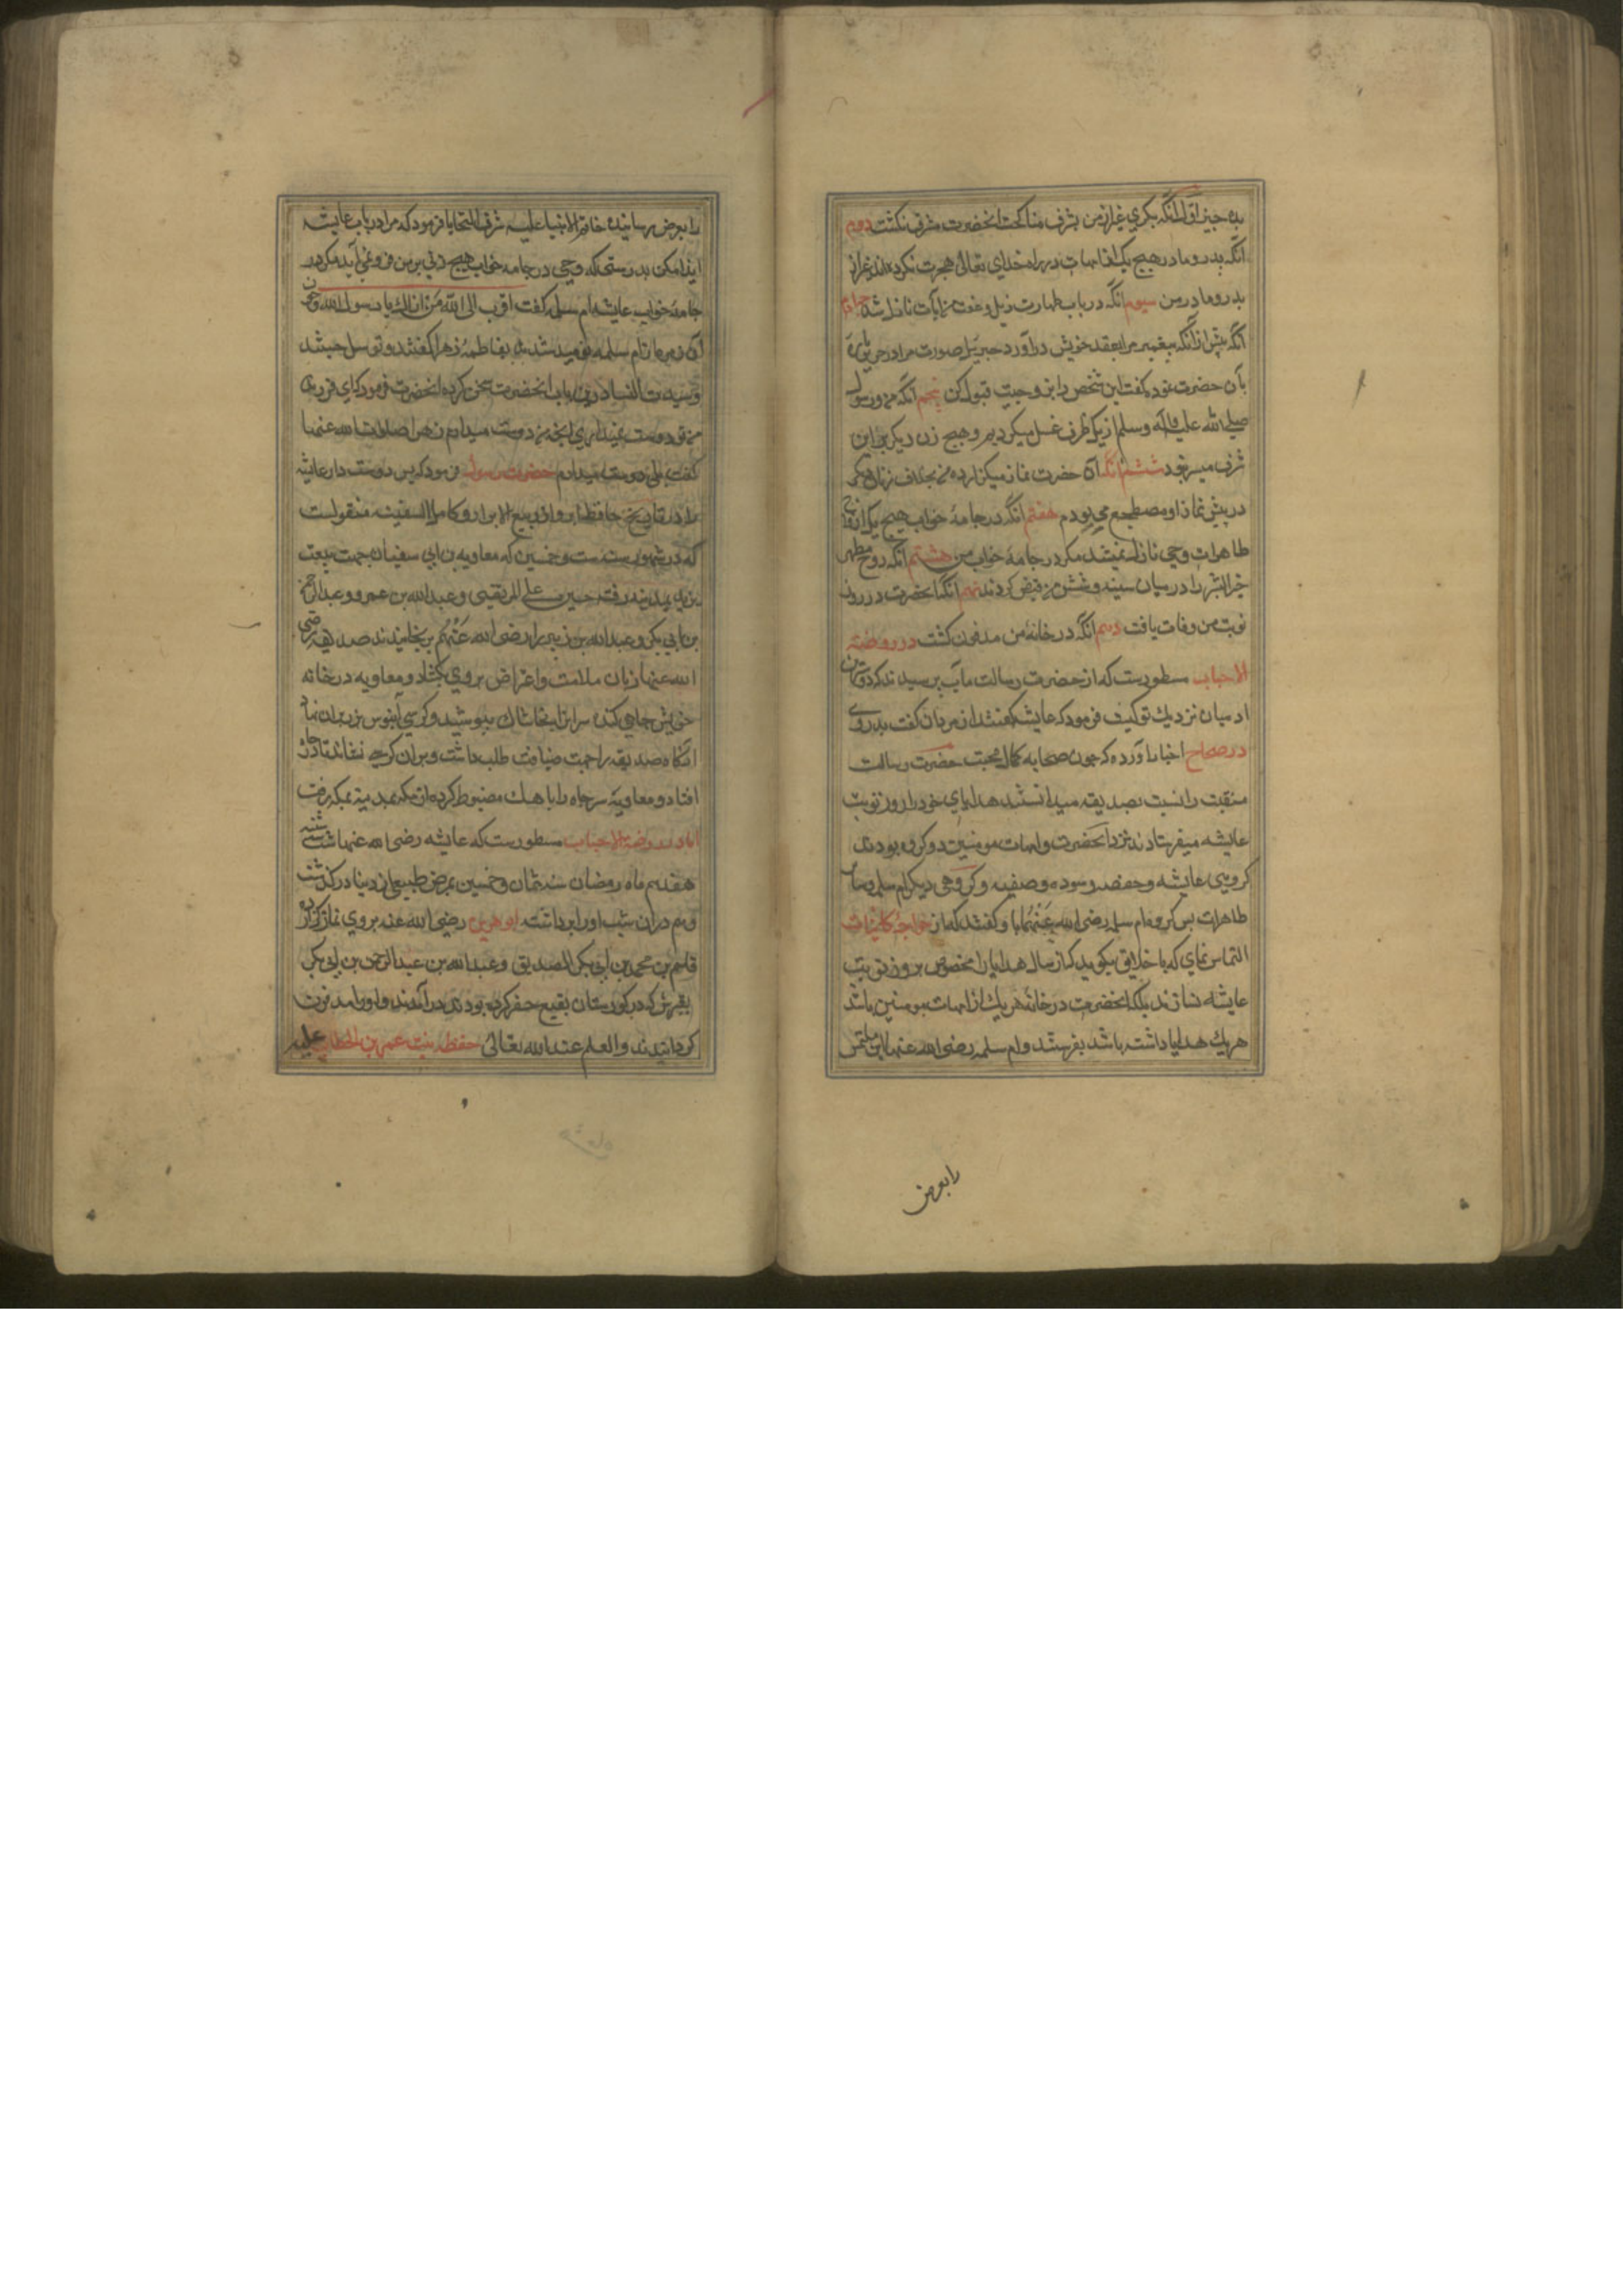 بده چیز اول آنکه بکری غیر از من بشرف مناکحت انحضرت مشرف نکشت دویم
آنکه پدر و مادر هیچ یک از امهات در راه خدای تعالی هجرت نکرده اند غیر از
پدر و مادر من سیوم آنکه در باب طهارت ذیل و عفت من آیات نازل شد چهارم
آنکه پیش از آنکه پیغمبر مرا بعقد خویش در آورد جبرئیل صورت مرا در حریر پاره
بآن حضرت نموده کفت این شخص را بزوجیت قبول کن پنجم آنکه من و رسول
صلی الله علیه وآله وسلم از یک ظرف غسل میکردیم و هیچ زن دیکر را این
شرف میسر نبود ششم آنکه آن حضرت نماز میکزارد و من بخلاف زنان دیکر
در پیش نماز او مضطجع می بودم هفتم آنکه در جامهٔ خواب هیچ یک از ازواج
طاهرات وحی نازل نمیشد مکر در جامهٔ خواب من هشتم آنکه روح مطهر
خیر البشر را در میان سینه و شش من قبض کردند نهم آنکه انحضرت در روز
نوبت من وفات یافت دهم آنکه در خانهٔ من مدفون کشت در روضة
الاحباب مسطورست که از حضرت رسالت مآب پرسیدند که دوستترین
ادمیان نزدیک تو کیست فرمود که عایشه کفتند از مردان کفت پدر وی
در صحاح اخبار آورده که چون صحابه کمال محبت حضرت رسالت
منقبت را نسبت بصدیقه میدانستند هدایای خود را روز نوبت
عایشه میفرستادند نزد انحضرت و امهات مومنین دو کروه بودند
کروهی عایشه و حفصه و سوده و صفیه و کروهی دیکر ام سلمه و سایر
طاهرات پس کروه ام سلمه رضی الله عنهم با او کفتند که از خواجهٔ کاینات
التماس نمای که با خلایق بکوید که ارسال هدایا را مخصوص بروز نوبت
عایشه نسازند بلکه انحضرت در خانهٔ هر یک از امهات مومنین باشد
هر یک هدایا داشته باشد بفرستند و ام سلمه رضی الله عنها این ملتمس
را بعرض
را بعرض رسانیده خاتم الانبیا علیه شرف التحایا فرمود که مرا در باب عایشه
ایذا مکن بدرستی که وحی در جامه خواب هیچ زنی بر من فرو نمی آید مکر در
جامهٔ خواب عایشه ام سلمه کفت اتوب الی الله من اذاک یا رسول الله و چون
آن زمره از ام سلمه نومید شدند بفاطمهٔ زهرا کفتند و متوسل جستند
و سیدت النسا درین باب با انحضرت سخن کرده انحضرت فرمود که ای فرزند
من تو دوست نمیداری انچه من دوست میدارم زهرا صلوات الله عنها
کفت بلی دوست میدارم حضرت رسول فرمود که پس دوست دار عایشه
را در تاریخ حافظ ابرو از ربیع الابرار و کامل السفینه منقولست
که در شهور سنه ست و خمسین که معاویه بن ابی سفیان جهت بیعت
یزید بمدینه رفته حسین بن علی المرتضی و عبدالله بن عمر و عبدالرحمن
بن ابی بکر و عبدالله بن زبیر را رضی الله عنهم برنجانیدند صدیقه رضی
الله عنها زبان ملامت و اعتراض بروی بکشاد و معاویه در خانه
خویش چاهی کنده سر انرا بخاشاک بپوشید و کرسی آبنوس بر زبر آن نهاد
انکاه صدیقه را جهت ضیافت طلب داشت و بران کرسی نشاند تا در چاه
افتاد و معاویه سر چاه را باهک مضبوط کرده از مدینه بمکه رفت
اما در روضة الاحباب مسطورست که عایشه رضی الله عنها شب سه شنبه
هفدهم ماه رمضان سنه ثمان و خمسین بمرض طبیعی از دنیا درکذشت
و هم در آن شب او را برداشته ابو هریره رضی الله عنه بر وی نماز کزارد
قاسم بن محمد بن ابی بکر الصدیق و عبدالله بن عبدالرحمن بن ابی بکر
بقبرش که در کورستان بقیع حفر کرده بودند در آمدند و او را مدفون
کردانیدند والعلم عند الله تعالی حفظه بنت عمر بن الخطاب علیه